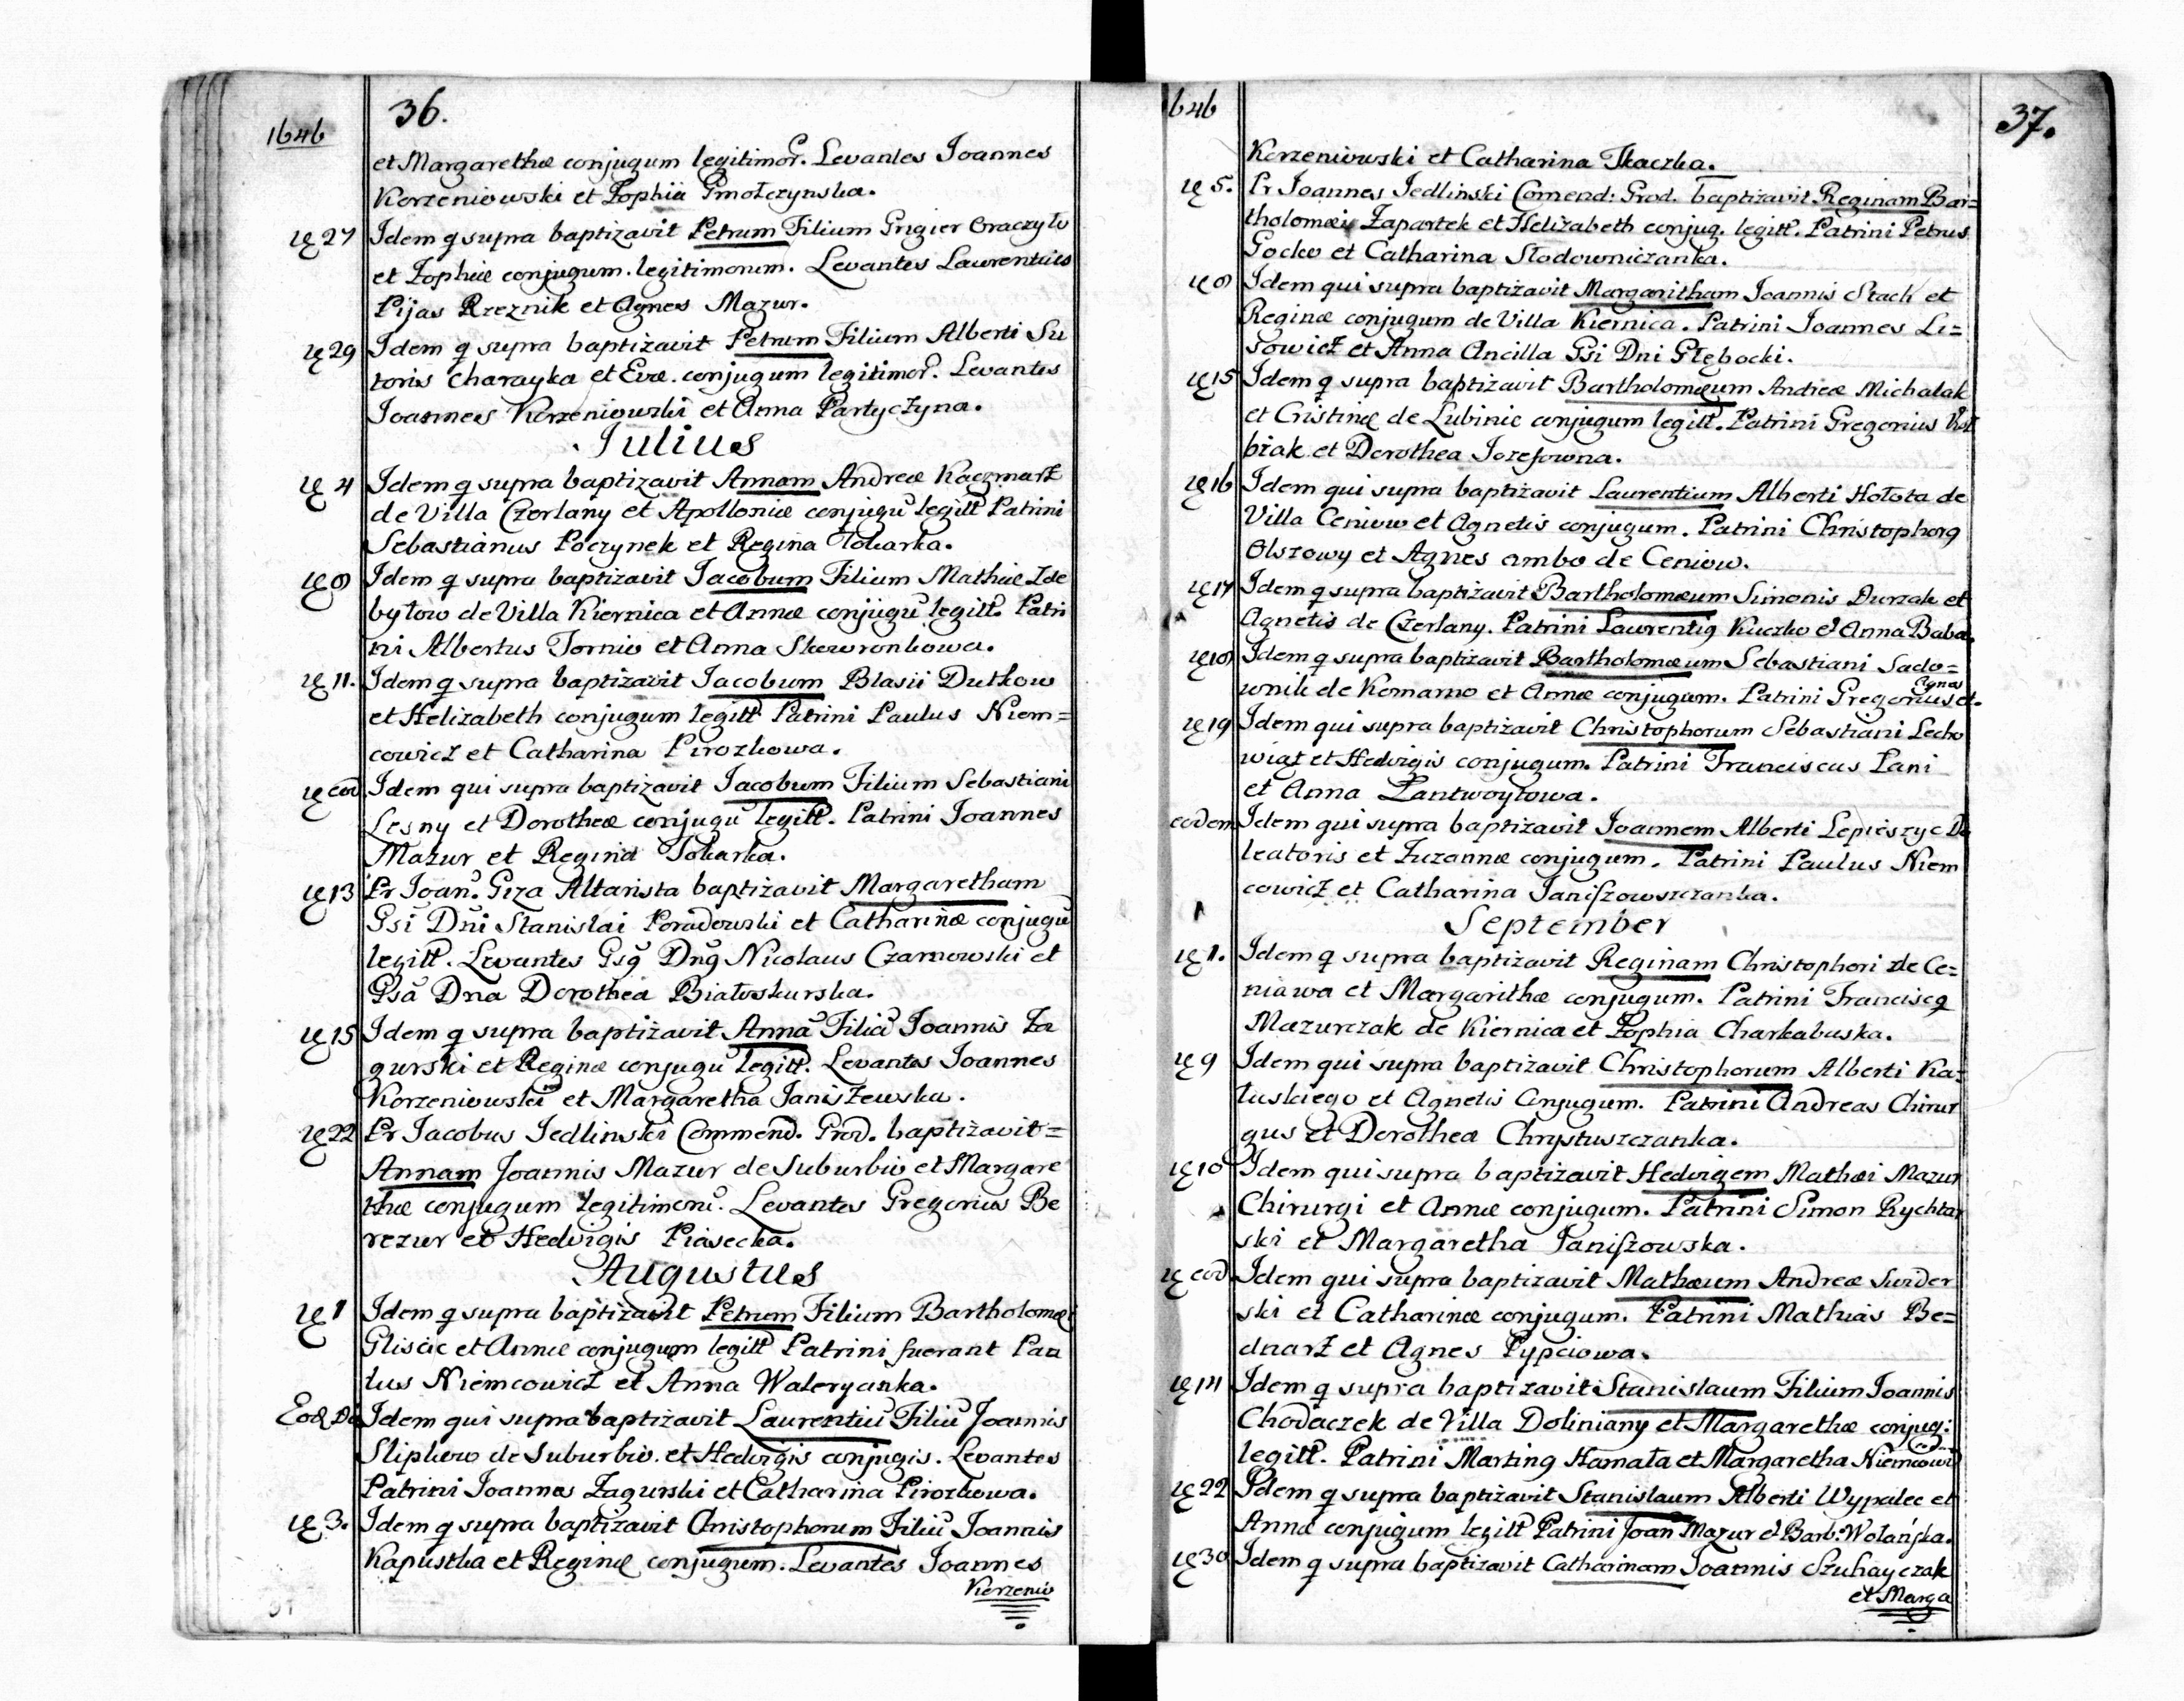 1646
36.
et Margarethæ conjugum legitimor. Levantes Joannes
Korzeniowski et Zophia Gmołczynska.
27 Idem q supra baptizavit Petrum Filium Grigier Oraczyło
et Zophiæ conjugum legitimorum. Levantes Laurentius
Pijas Rzeznik et Agnes Mazur.
29 Idem q supra baptizavit Petrum Filium Alberti Su
toris Charayka et Evæ conjugum legitimor. Levantes
Joannes Korzeniowski et Anna Partyczyna.
Julius
4 Idem q supra baptizavit Annam Andreæ Kaczmarz
de Villa Czerlany et Apolloniæ conjugu legitt Patrini
Sebastianus Poczynek et Regina Tokarka.
8 Idem q supra baptizavit Jacobum Filium Mathiæ Zde
byłow de Villa Kiernica et Annæ conjugu legitt. Patri
ni Albertus Tornio et Anna Skowronkowa.
11. Idem q supra baptizavit Jacobum Blasii Dutkow
et Helizabeth conjugum legitt Patrini Paulus Niem=
cowicz et Catharina Pirozkowa.
eod Idem qui supra baptizavit Jacobum Filium Sebastiani
Lesny et Dorotheæ conjugu legitt. Patrini Joannes
Mazur et Regina Tokarka.
13 Pr Joan. Giza Altarista baptizavit Margaretham
Gsi Dni Stanislai Poradowski et Catharinæ conjugu
legitt. Levantes Gsq Dnq Nicolaus Czarnowski et
Gsa Dna Dorothea Białoskurska.
15 Idem q supra baptizavit Anna Filia Joannis Za
gurski et Reginæ conjugu legitt. Levantes Joannes
Korzeniowski et Margaretha Janiszewska.
22 Pr Jacobus Jedlinski Commend. Grod. baptizavit=
Annam Joannis Mazur de Suburbio et Margare
thæ conjugum legitimoru. Levantes Gregorius Be
rezur et Hedvigis Piasecka.
Augustus
1 Idem q supra baptizavit Petrum Filium Bartholomæi
Gliscic et Annæ conjugum legitt Patrini fuerant Pau
lus Niemcowicz et Anna Waleryanka.
Eod Die Idem qui supra baptizavit Laurentiu Filiu Joannis
Slipkow de Suburbio et Hedvigis conjugis. Levantes
Patrini Joannes Zagurski et Catharina Pirozkowa.
3. Idem q supra baptizavit Christophorum Filiu Joannis
Kapustka et Reginæ conjugum. Levantes Joannes
Korzenio
646
37.
Korzeniowski et Catharina Tkaczka.
5. Pr Joannes Jedlinski Comend: Grod. baptizavit Reginam Bar=
tholomæi Zapartek et Helizabeth conjug. legitt. Patrini Petrus
Gocko et Catharina Słodowniczanka.
8 Idem qui supra baptizavit Margaritham Joannis Stach et
Reginæ conjugum de Villa Kiernica. Patrini Joannes Li=
sowicz et Anna Ancilla Gsi Dni Głębocki.
15 Idem q supra baptizavit Bartholomæum Andreæ Michalak
et Cristinæ de Lubinie conjugum legitt. Patrini Gregorius
biak et Dorothea Jozefowna.
16 Idem qui supra baptizavit Laurentium Alberti Hołota de
Villa Ceniow et Agnetis conjugum. Patrini Christophorq
Olszowy et Agnes ambo de Ceniow.
17 Idem q supra baptizavit Bartholomæum Simonis Durzak et
Agnetis de Czerlany. Patrini Laurentiq Kuczko et Anna Baba.
18 Idem q supra baptizavit Bartholomæum Sebastiani Sado=
wnik de Komarno et Annæ conjugum. Patrini Gregorius et Agnes.
19 Idem qui supra baptizavit Christophorum Sebastiani Lecho
wiąt et Hedvigis conjugum. Patrini Franciscus Pani
et Anna Lantwoytowa.
eodem Idem qui supra baptizavit Joannem Alberti Lepieszyc Do
leatoris et Zuzannæ conjugum. Patrini Paulus Niem
cowicz et Catharina Janiszowszczanka.
September
1. Idem q supra baptizavit Reginam Christophori de Ce=
niawa et Margarithæ conjugum. Patrini Franciscq
Mazurczak de Kiernica et Zophia Charkabuska.
9 Idem qui supra baptizavit Christophorum Alberti Ka=
łuskiego et Agnetis Conjugum. Patrini Andreas Chirur
gus et Dorothea Chrystuszczanka.
10 Idem qui supra baptizavit Hedvigem Mathæi Mazur
Chirurgi et Annæ conjugum. Patrini Simon Rychtar
ski et Margaretha Janiszowska.
eod Idem qui supra baptizavit Mathæum Andreæ Swider
ski et Catharinæ conjugum. Patrini Mathias Be=
dnarz et Agnes Pypciowa.
14 Idem q supra baptizavit Stanislaum Filium Joannis
Chodaczek de Villa Doliniany et Margarethæ conjug:
legitt. Patrini Martinq Hamała et Margaretha Niemcowi
22 Idem q supra baptizavit Stanislaum Alberti Wypalec et
Annæ conjugum legitt Patrini Joan Mazur et Barb: Wolańska.
30 Idem q supra baptizavit Catharinam Joannis Szuhayczak
et Marga